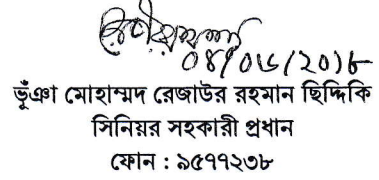 ০৪/০৬/২০১৮
ভূঁঞা মোহাম্মদ রেজাউর রহমান ছিদ্দিকি
সিনিয়র সহকারী প্রধান
ফোন : ৯৫৭৭২৩৮